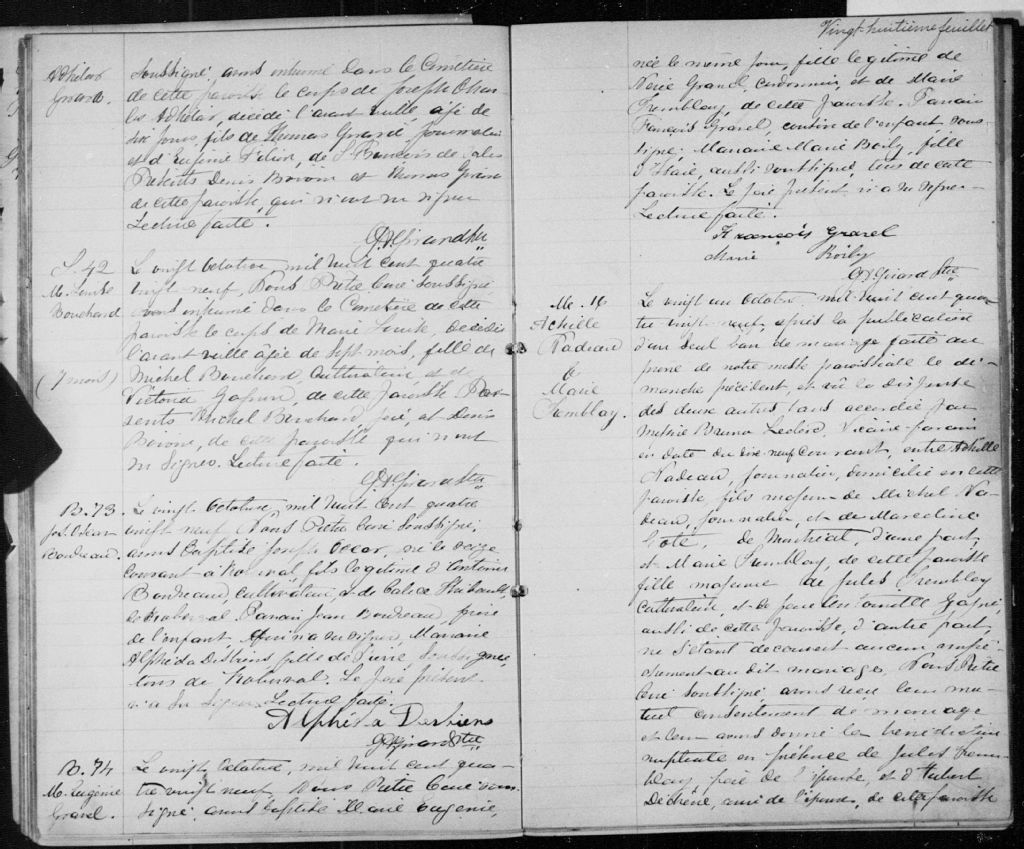 Adhélar
Girard.
soussigné, avons inhumé dans le Cimetière
de cette paroisse le corps de Joseph Char
les Adhélar, décédé l'avant veille, âgé de
dix jours, fils de Thomas Girard, journalier
et d'Eugénie Potvin, de St François de Sales
Présents Denis Boivin et Thomas Girard
de cette paroisse, qui n'ont su signer
Lecture faite.
Girard Ptre
S. 42
M. Louise
Bouchard
(7 mois)
Le vingt Octobre mil huit cent quatre
vingt neuf, Nous Prêtre Curé soussigné
avons inhumé dans le Cimetière de cette
paroisse le corps de Marie Louise, décédée
l'avant veille âgée de sept mois, fille de
Michel Bouchard, Cultivateur, et de
Victoria Gagnon, de cette paroisse Pré-
sents Michel Bouchard, père, et Denis
Boivin, de cette paroisse qui n'ont
su signer. Lecture faite.
Girard Ptre
B. 73
Jos. Oscar
Boudreau.
Le vingt Octobre, mil huit cent quatre
vingt neuf, Nous Prêtre Curé soussigné
avons baptisé Joseph Oscar, né le seize
courant à Roberval, fils légitime d'Antoine
Boudreau, cultivateur, et de Thibault,
de Roberval Parrain Jean Boudreau, frère
de l'enfant qui n'a su signer, Marraine
Alphéda Desbiens fille de Pierre,
tous de Roberval. Le Père présent
n'a su signer. Lecture faite.
Alphéda Desbiens
Girard Ptre
B. 74
M. Eugénie
Gravel.
Le vingt Octobre, mil huit cent qua-
tre vingt neuf Nous Prêtre Curé sous-
signé avons baptisé Marie Eugénie,
Vingt-huitième feuillet
née le même jour, fille légitime de
Gravel, cordonnier, et de Marie
Tremblay, de cette paroisse. Parrain
François Gravel, cousin de l'enfant sous-
signé; Marraine Marie Boily, fille
d'Isaïe, aussi soussignée, tous de cette
paroisse. Le Père présent n'a su signer
Lecture faite.
François Gravel
Marie Boily
Girard Ptre
M. 16
Achille
Nadeau
&
Marie
Tremblay.
Le vingt un Octobre, mil huit cent qua-
tre vingt-neuf après la publication
d'un seul ban de mariage faite au
prône de notre messe paroissiale le di-
manche précédent, et vû la dispense
des deux autres bans accordée par
Messire Bruno Leclerc, Vicaire forain
en date du dix-neuf courant, entre Achille
Nadeau, journalier, domicilié en cette
paroisse fils majeur de Michel Na-
deau, journalier, et de Marceline
Coté, de Montréal, d'une part;
et Marie Tremblay, de cette paroisse
fille majeure de Jules Tremblay
cultivateur, et de feue Antoinette Gagné,
aussi de cette paroisse, d'autre part;
ne s'étant découvert aucun empê-
chement au dit mariage, Nous Prêtre
Curé soussigné, avons reçu leur mu-
tuel consentement de mariage
et leur avons donné la bénédiction
nuptiale en présence de Jules Trem-
blay père de l'épouse, et d'Hubert
Dechêne, ami de l'époux, de cette paroisse